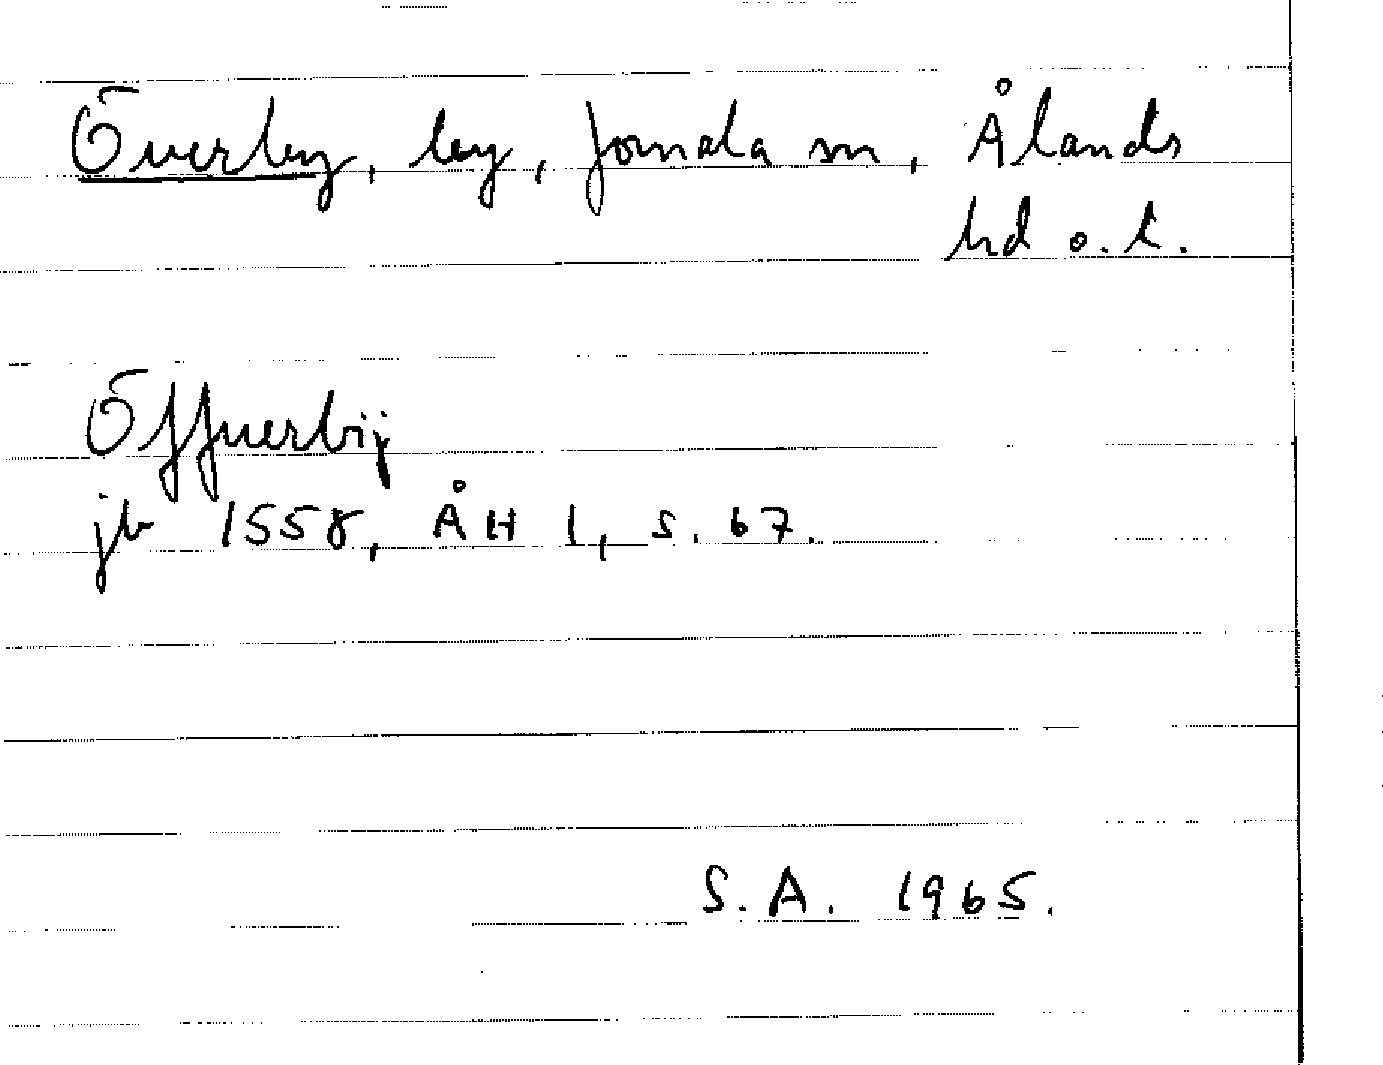 Överby, by, Jomala sn, Ålands
hd o. l.
Öffuerbij
jb 1558, ÅH 1, s. 67.
S.A. 1965.